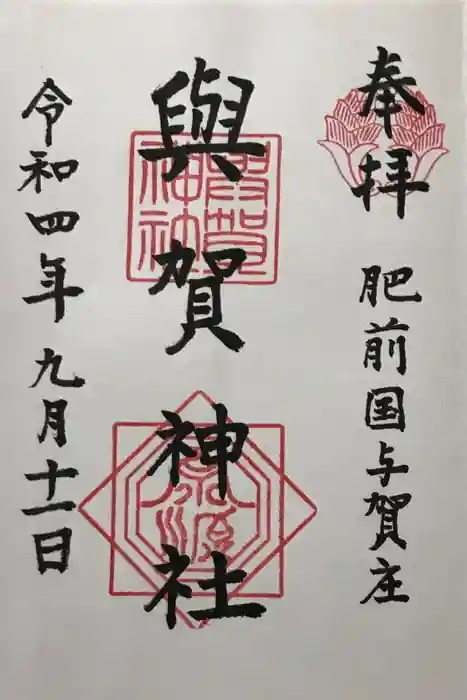 奉拝
肥前国与賀庄
與賀神社
與賀神社
令和四年九月十一日